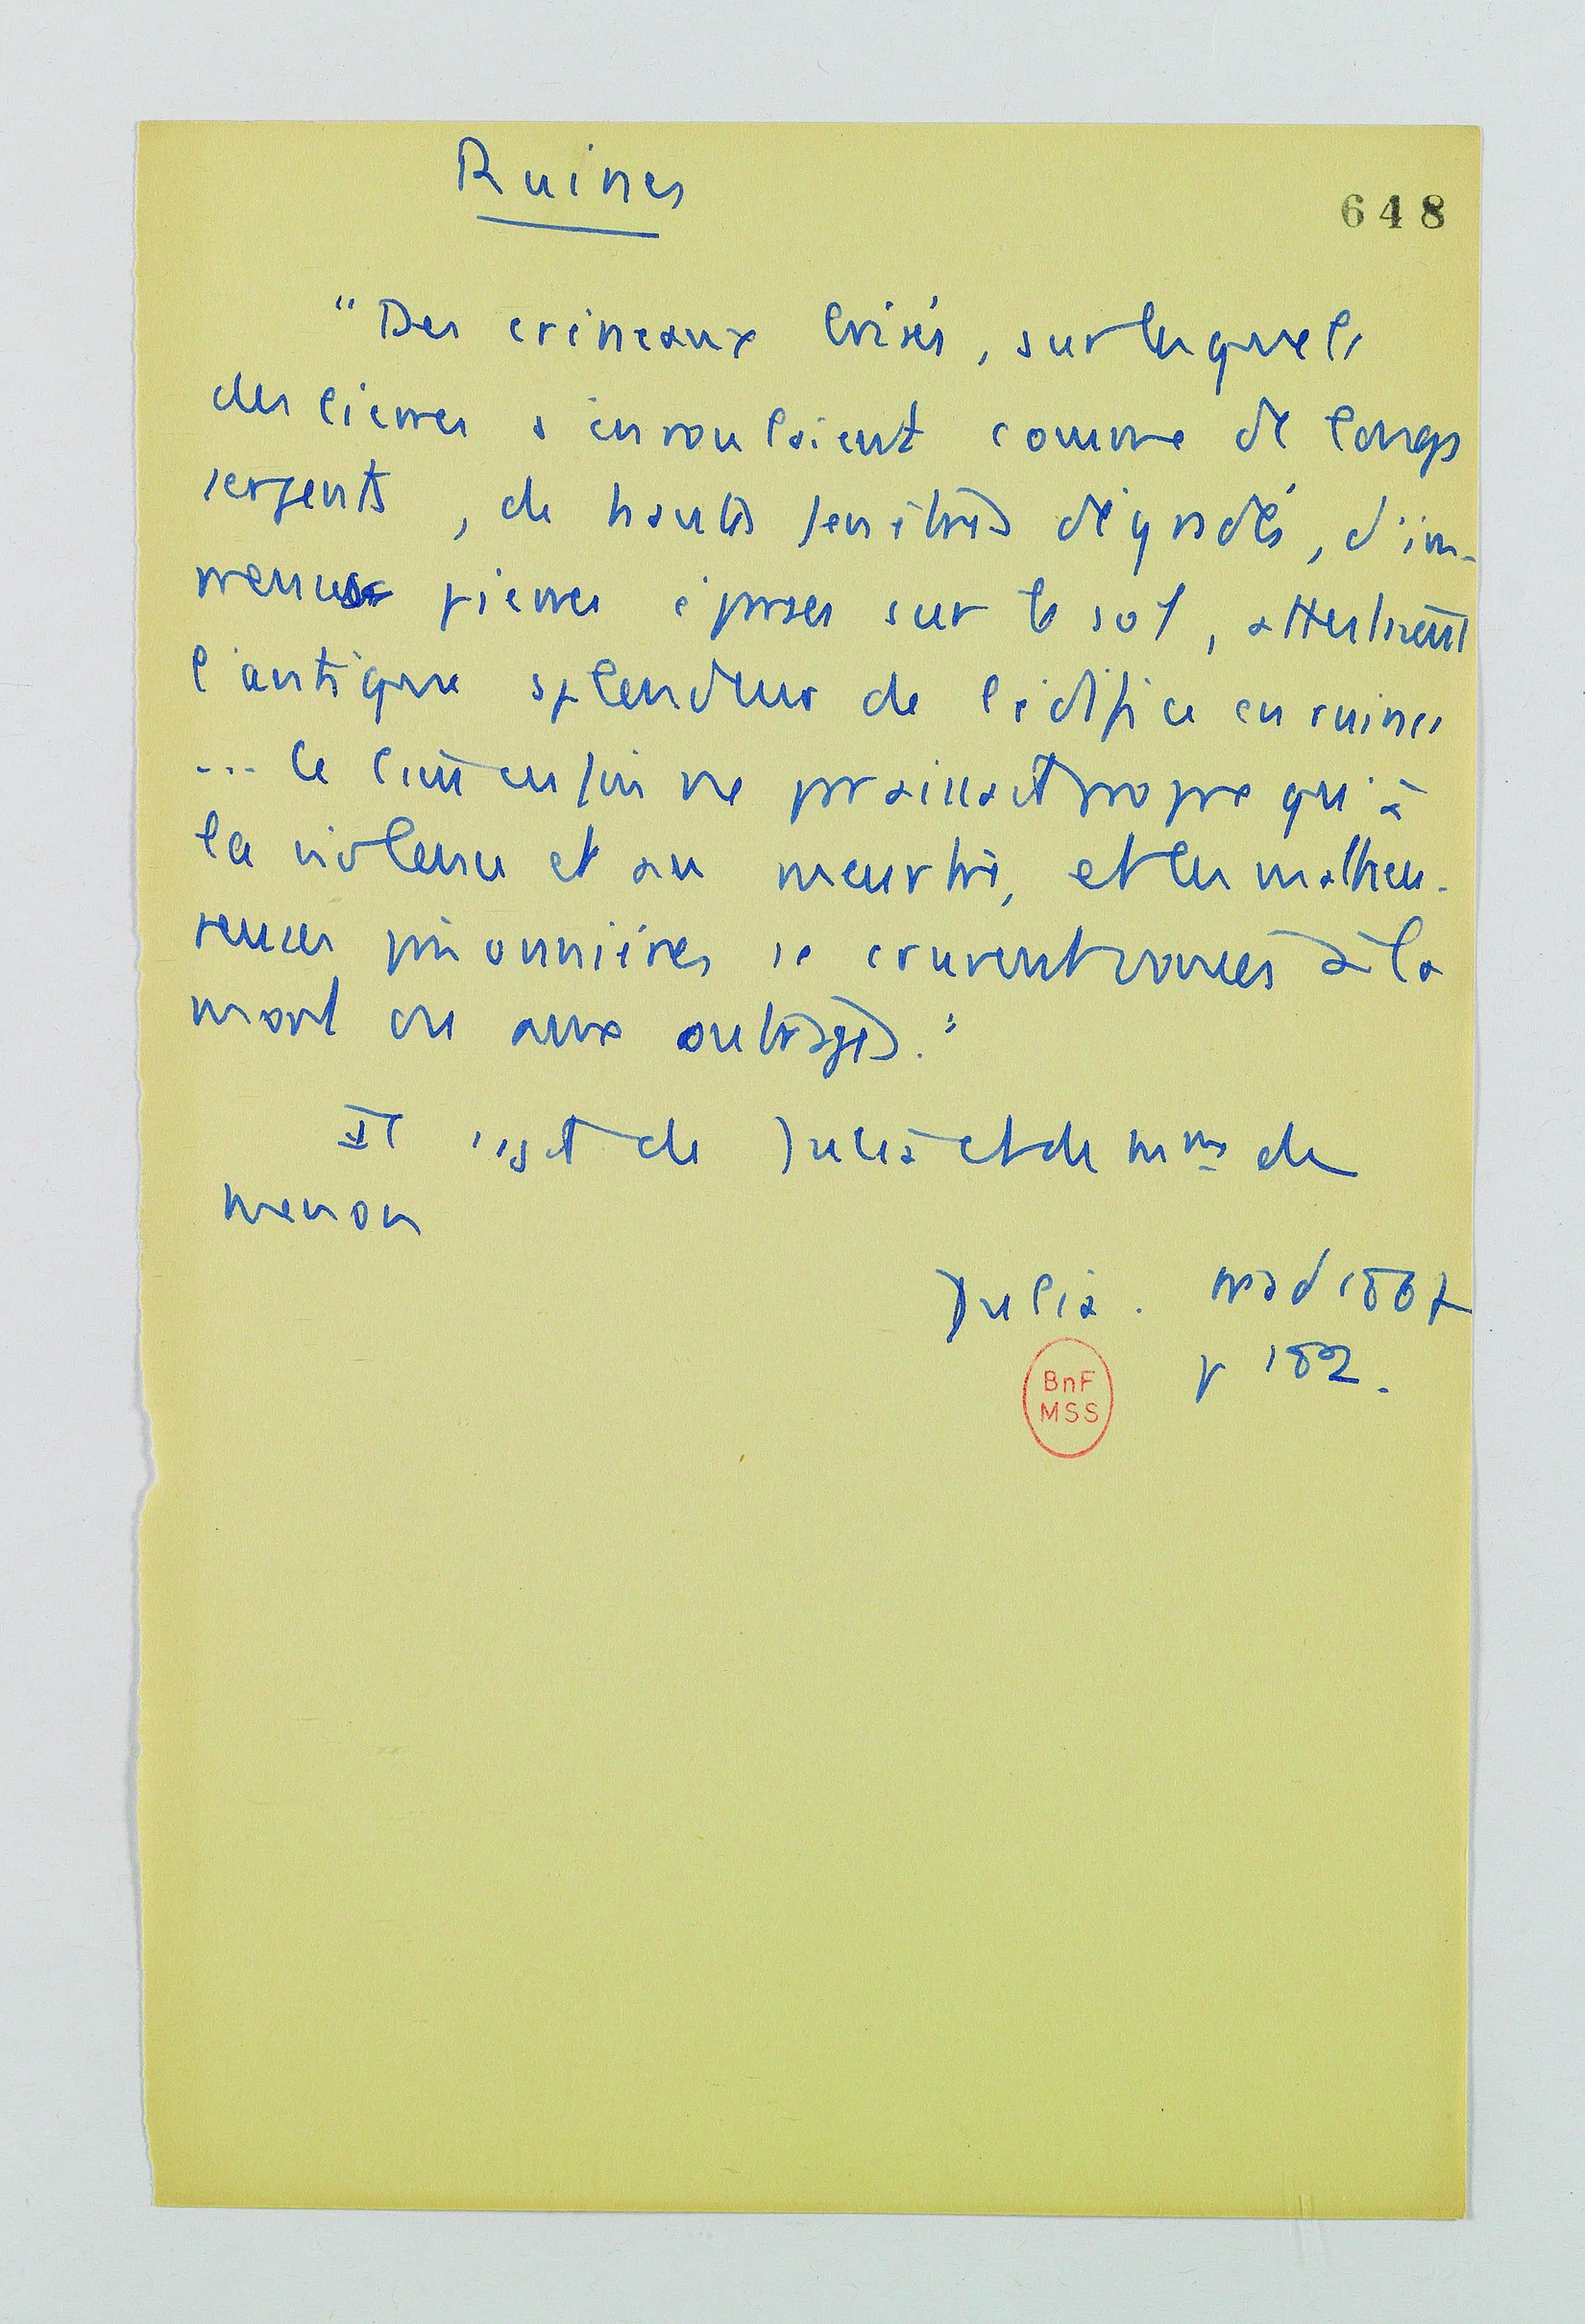 Ruines
648
"Des créneaux brisés, sur lesquels
des lierres s'enroulaient comme de longs
serpents, de hautes fenêtres dégradées, d'im-
menses pierres éparses sur le sol, attestaient
l'antique splendeur de l'édifice en ruines
... Ce lieu enfin ne paraissait propre qu'à
la violence et au meurtre, et les malheu-
reuses prisonnières se crurent vouées à la
mort ou aux outrages."
Il s'agit de Julia et de Mme de
Menon
Julia. trad 1867
p 182.
BnF
MSS